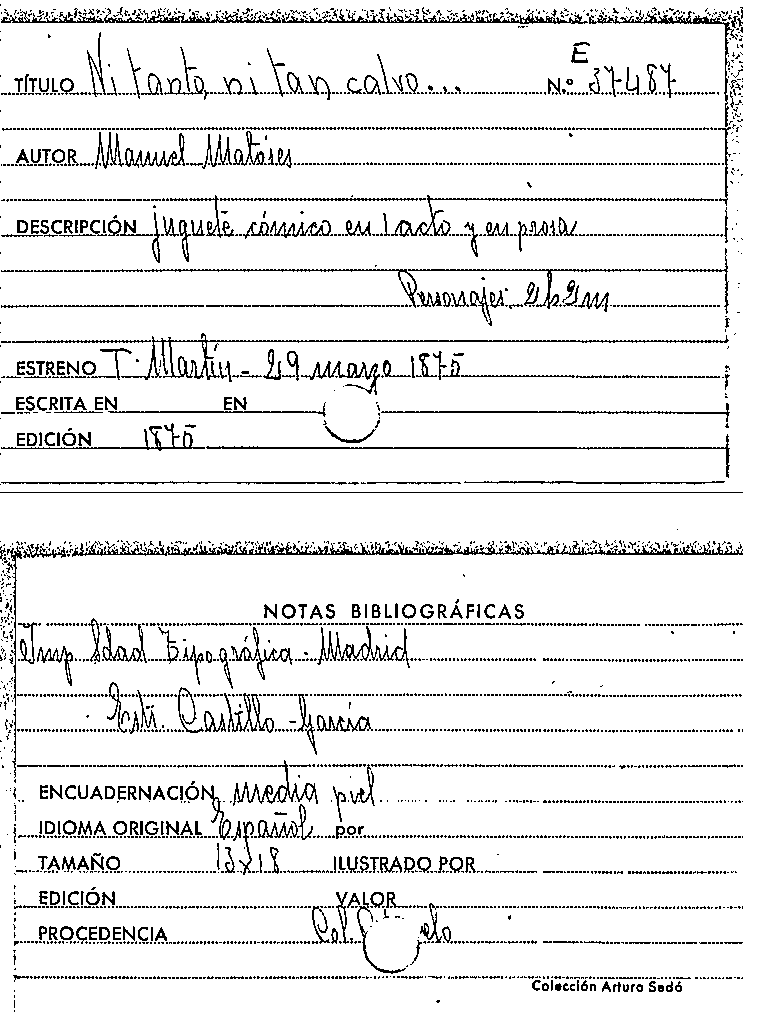 E
TÍTULO Ni tanto, ni tan calvo... N.º 37487
AUTOR Manuel Matoses
DESCRIPCIÓN juguete cómico en 1 acto y en prosa
Personajes: 2h2m
ESTRENO T. Martín - 29 marzo 1875
ESCRITA EN EN
EDICIÓN 1875
NOTAS BIBLIOGRÁFICAS
Imp Sdad Tipográfica - Madrid
Estr. Castillo - García
ENCUADERNACIÓN media piel
IDIOMA ORIGINAL Español por
TAMAÑO 13x18 ILUSTRADO POR
EDICIÓN VALOR
PROCEDENCIA Col.
Colección Arturo Sedó